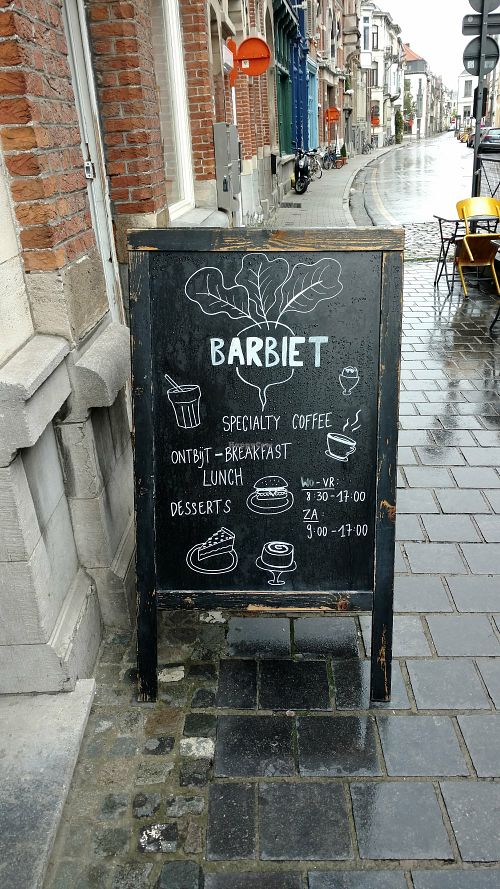 BARBIET
SPECIALTY COFFEE
ONTBIJT - BREAKFAST
LUNCH
DESSERTS
WO - VR:
8:30 - 17:00
ZA:
9:00 - 17:00